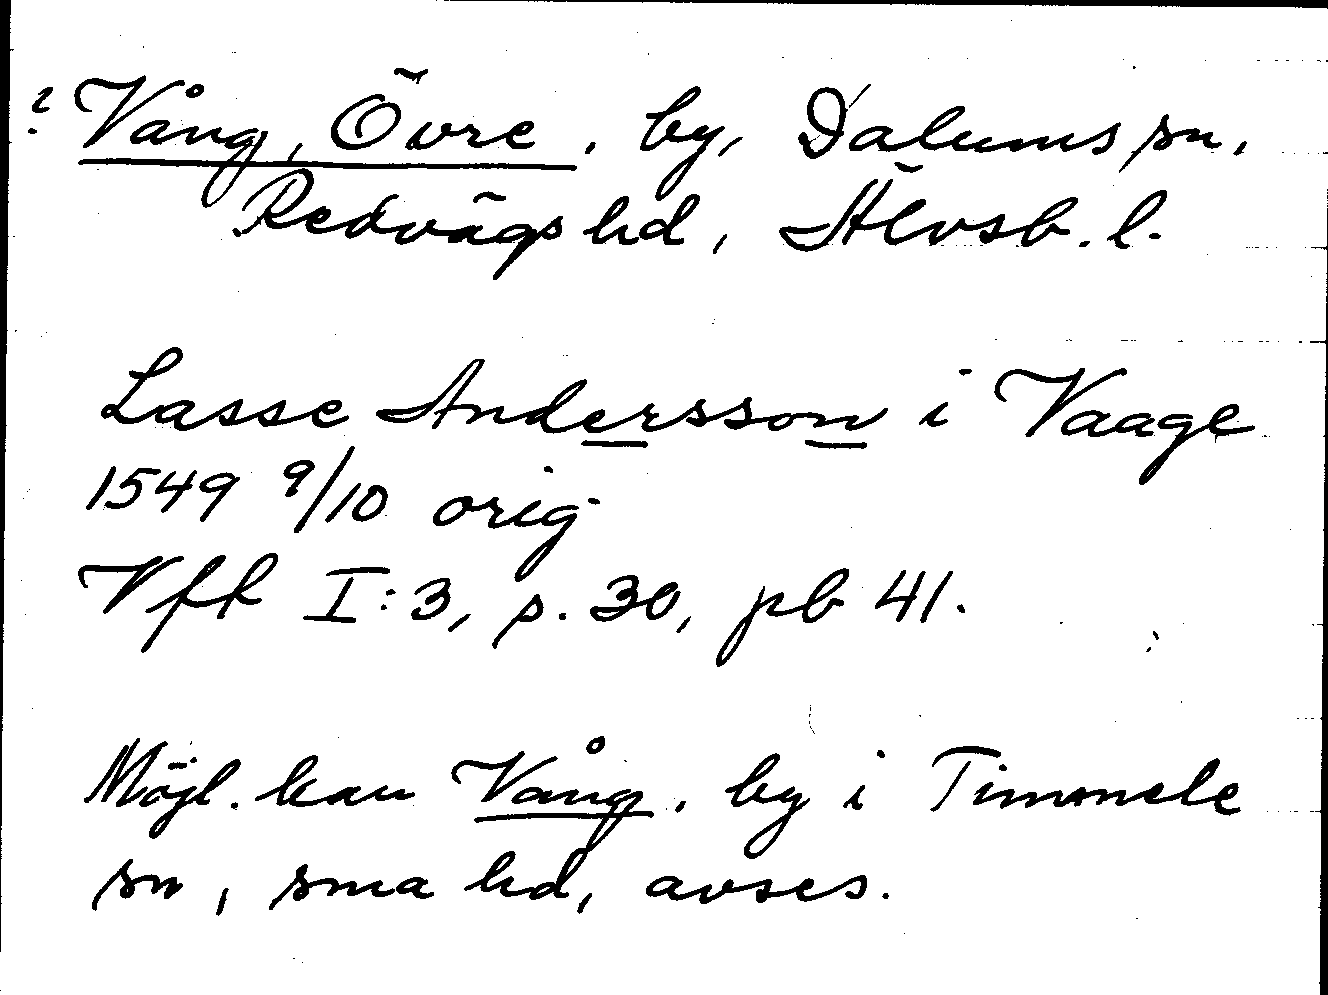 ? Vång, Övre, by, Dalums sn,
Redvägs hd, Älvsb. l.
Lasse Andersson i Vaage
1549 9/10 orig
Vfk I:3, s. 30, pb 41.
Möjl. kan Vång, by i Timmele
sn, sma hd, avses.